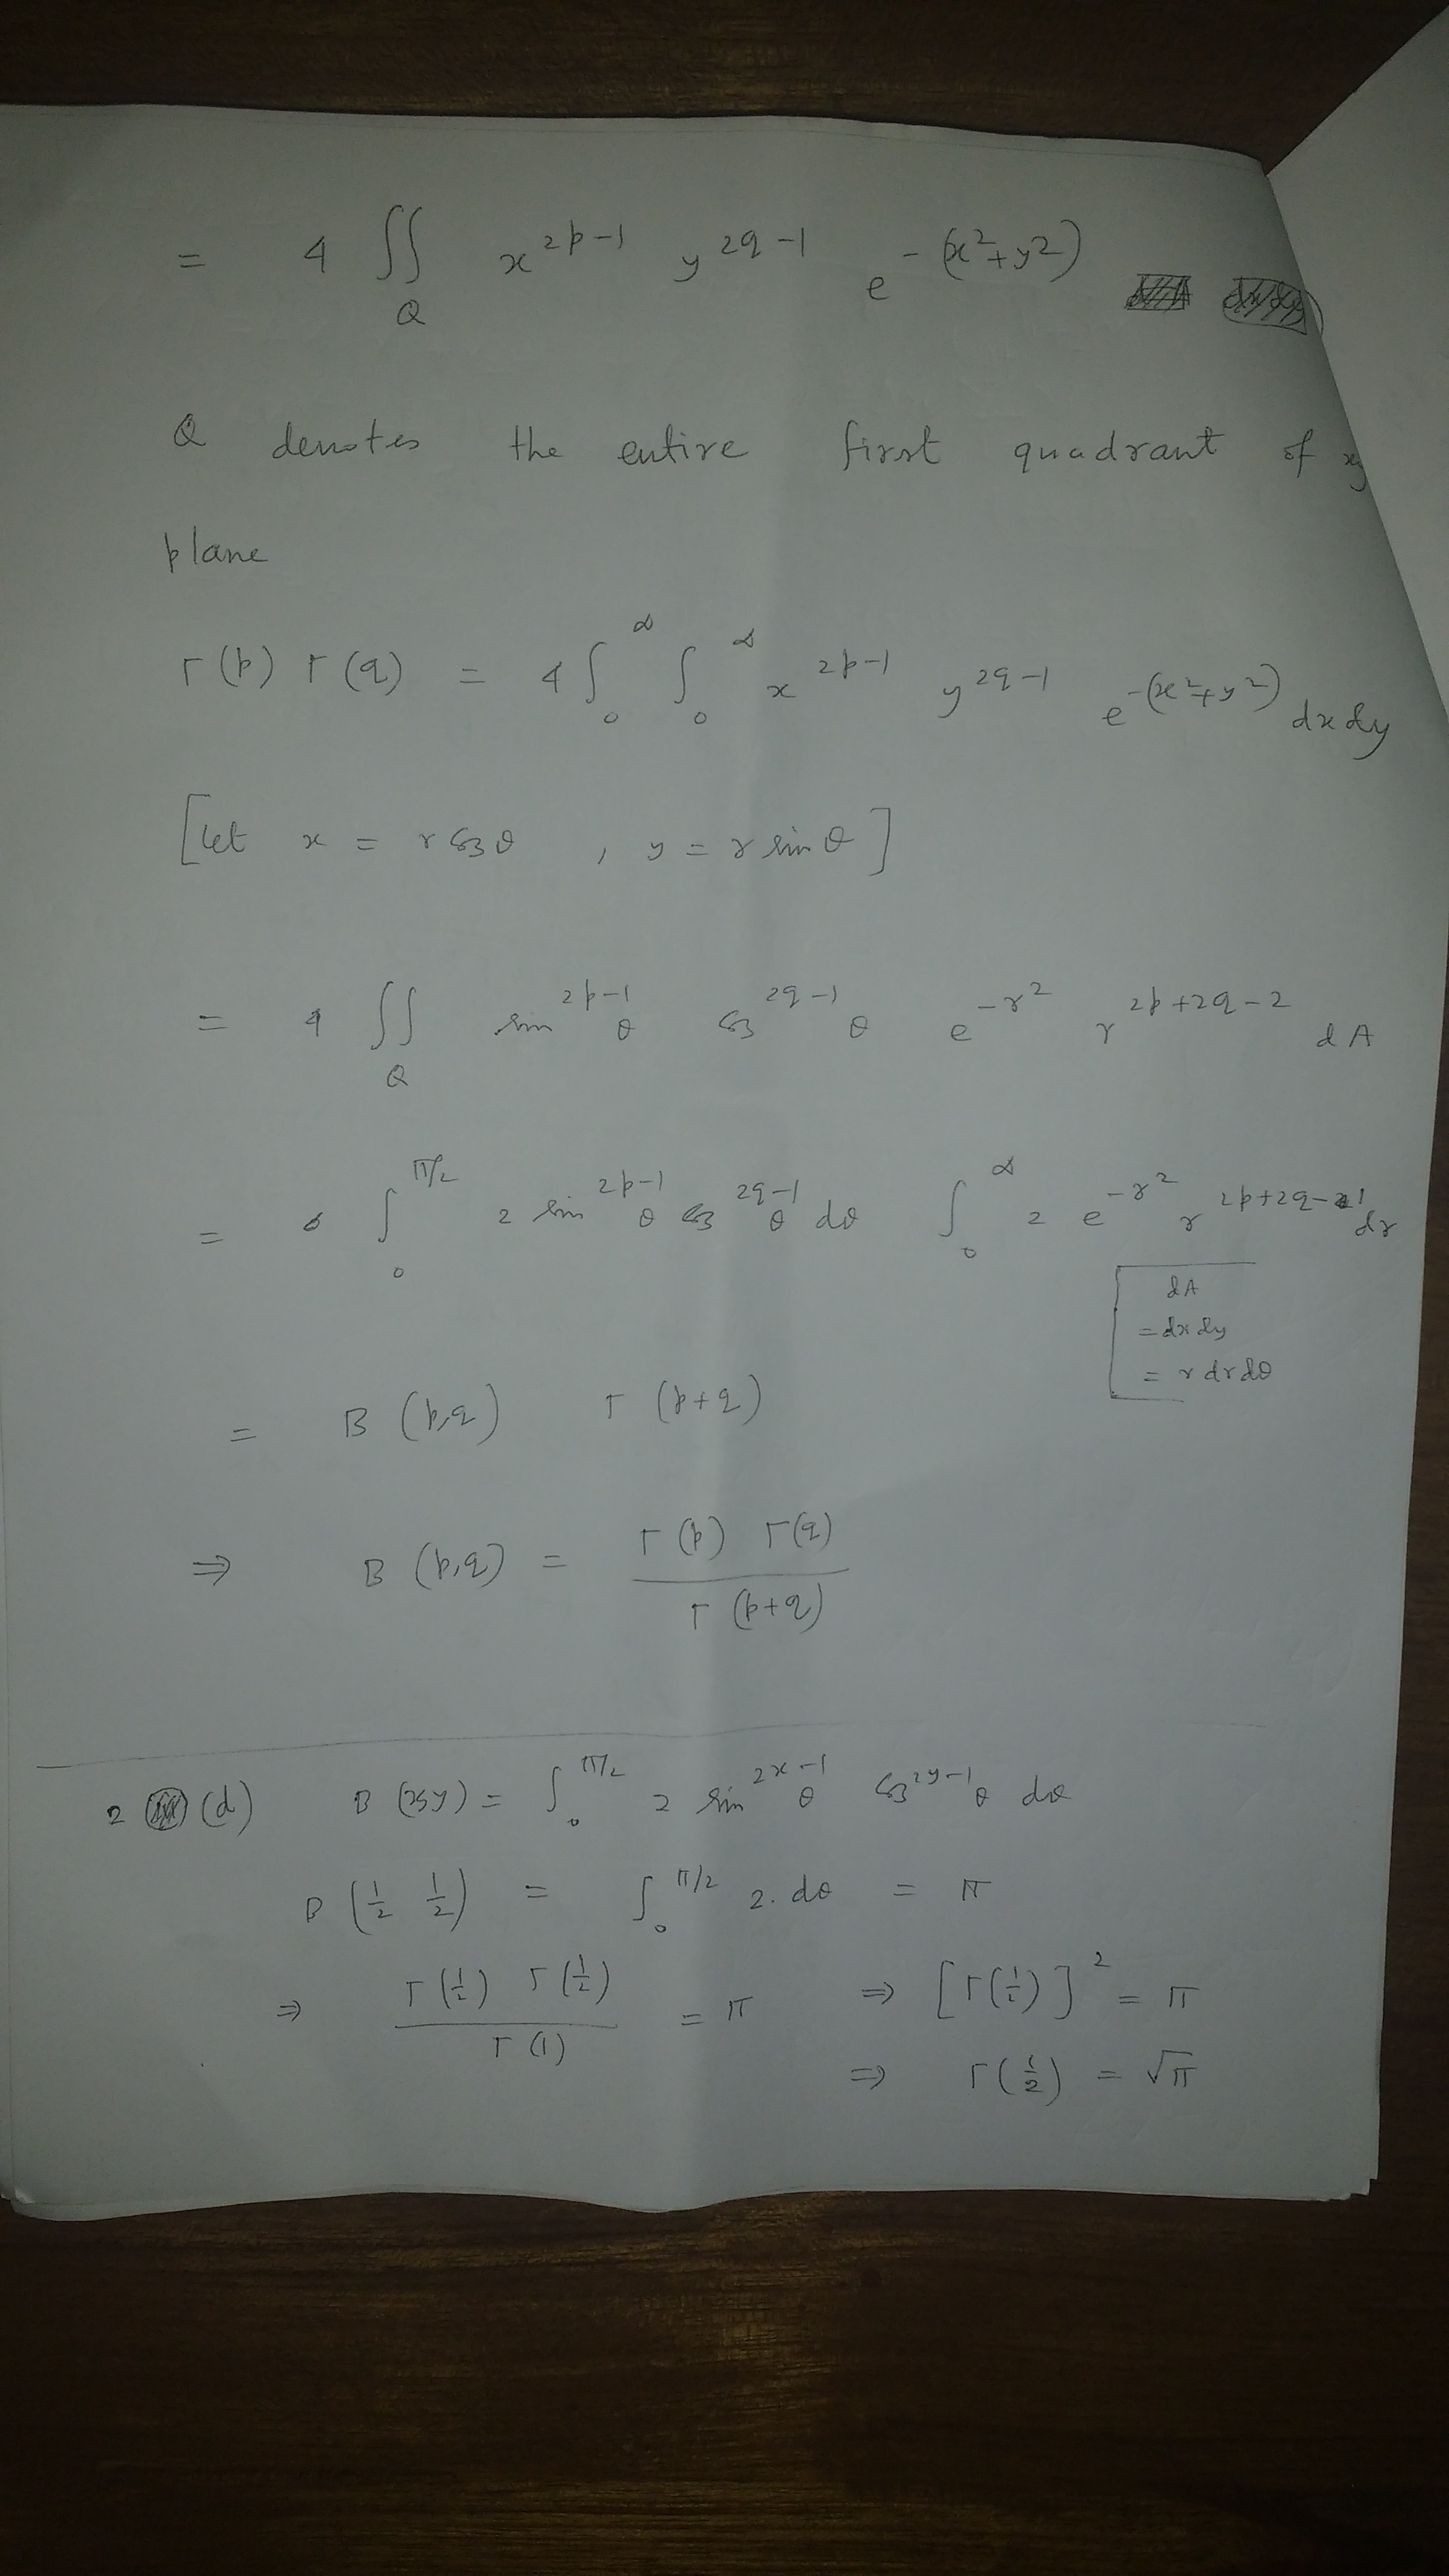 = 4 ∬_Q x^{2p-1} y^{2q-1} e^{-(x²+y²)}
Q denotes the entire first quadrant of xy
plane
Γ(p) Γ(q) = 4 ∫_0^∞ ∫_0^∞ x^{2p-1} y^{2q-1} e^{-(x²+y²)} dx dy
[let x = r cos θ , y = r sin θ]
= 4 ∬_Q sin^{2p-1} θ cos^{2q-1} θ e^{-r²} r^{2p+2q-2} dA
= ∫_0^{π/2} 2 sin^{2p-1} θ cos^{2q-1} θ dθ ∫_0^∞ 2 e^{-r²} r^{2p+2q-1} dr
dA
= dx dy
= r dr dθ
= B (p,q) Γ (p+q)
⇒ B (p,q) = Γ(p) Γ(q) / Γ(p+q)
2 (d) B (x,y) = ∫_0^{π/2} 2 sin^{2x-1} θ cos^{2y-1} θ dθ
B (1/2 1/2) = ∫_0^{π/2} 2. dθ = π
⇒ Γ(1/2) Γ(1/2) / Γ(1) = π ⇒ [Γ(1/2)]² = π
⇒ Γ(1/2) = √π